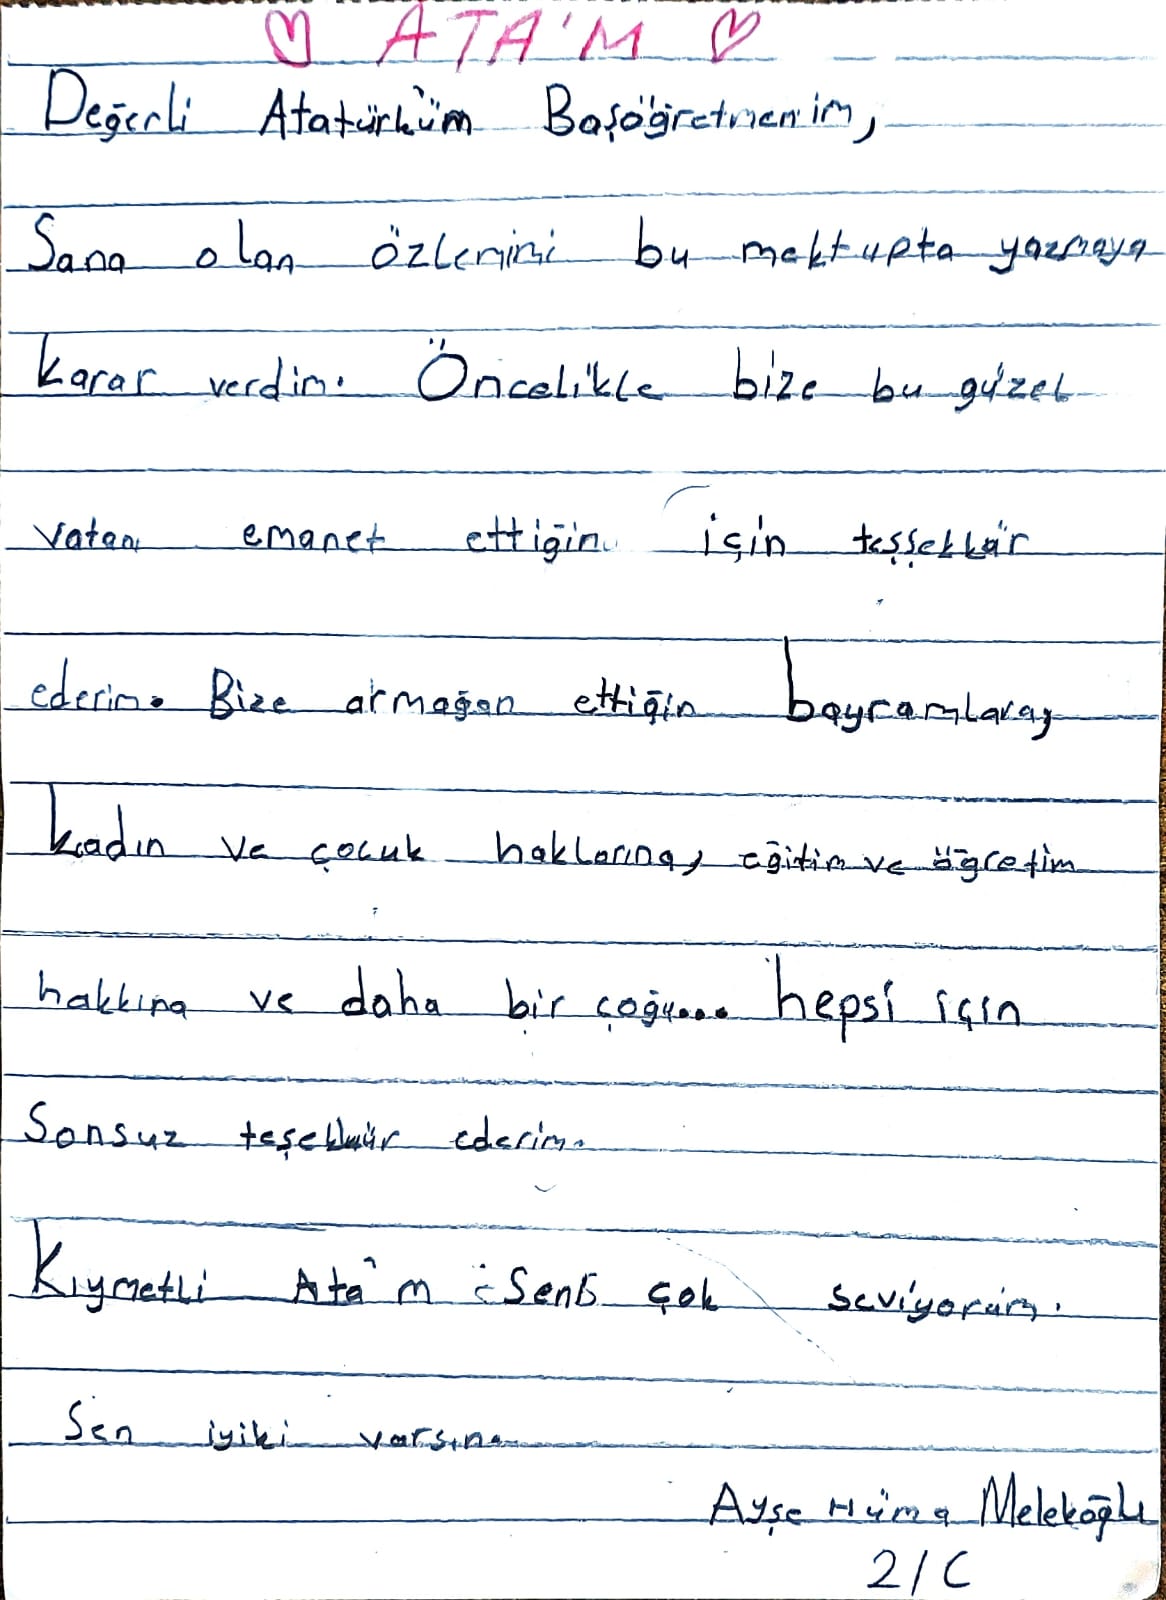 ♡ ATA'M ♡
Değerli Atatürk'üm Başöğretmenim,
Sana olan özlemimi bu mektupta yazmaya
karar verdim. Öncelikle bize bu güzel
vatanı emanet ettiğin için teşşekkür
ederim. Bize armağan ettiğin bayramlara,
kadın ve çocuk haklarına, eğitim ve öğretim
hakkına ve daha bir çoğu... hepsi için
Sonsuz teşekkür ederim.
Kıymetli Ata'm Seni çok seviyorum.
Sen iyiki varsın.
Ayşe Hüma Melekoğlu
2/C